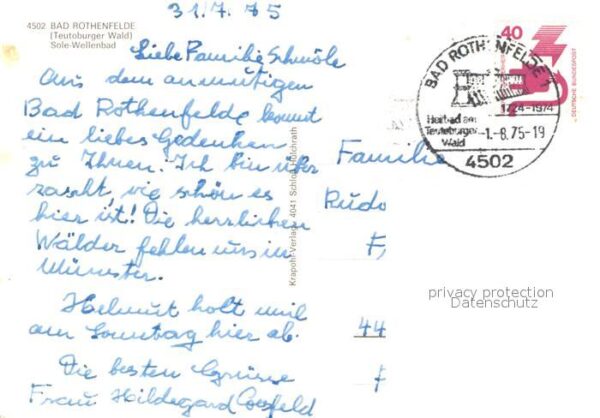 31.7.75
4502 BAD ROTHENFELDE
(Teutoburger Wald)
Sole-Wellenbad
Liebe Familie Schmöle
Aus dem anmutigen
Bad Rothenfelde kommt
ein liebes Gedenken
zu Ihnen! Ich bin über
rascht, wie schön es
hier ist! Die herrlichen
Wälder fehlen uns in
Münster.
Helmut holt mich
am Sonntag hier ab.
Die besten Grüsse
Frau Hildegard Coesfeld
Krapohl-Verlag 4041 Schloß Hülchrath
40
DEUTSCHE BUNDESPOST
BAD ROTHENFELDE
1724-1974
Heilbad am
Teutoburger
Wald
-1.-8.75-19
4502
Familie
Rudo
F
44
privacy protection
Datenschutz